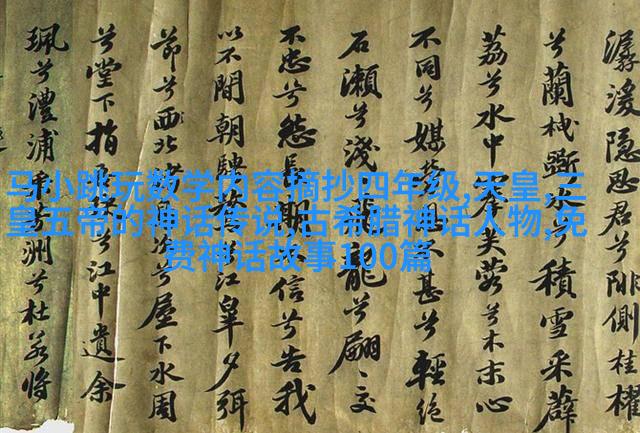 潺湲隱思君兮陫側桂櫂
兮蘭枻斲冰兮積雪采薜
荔兮水中搴芙蓉兮木末心
不同兮媒勞恩不甚兮輕絕
石瀨兮淺淺飛龍兮翩〻交
不忠兮怨長期不信兮告我
以不閒朝騁騖兮江皋夕弭
節兮西北渚鳥次兮屋下水周
兮堂下捐余玦兮江中遺余
珮兮澧浦采芳洲兮杜若將
马小跳玩数学内容摘抄四年级,天皇,三
皇五帝的神话传说,古希腊神话人物,免
费神话故事100篇